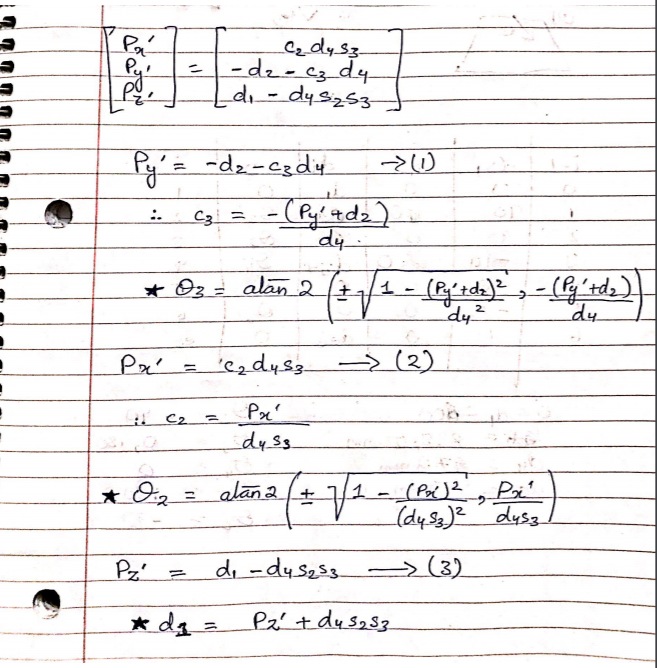 [Px'] [c2 d4 s3]
[Py'] = [-d2 - c3 d4]
[Pz'] [d1 - d4 s2 s3]
Py' = -d2 - c3 d4 → (1)
∴ c3 = -(Py' + d2) / d4
★ θ3 = atan 2 (± √(1 - (Py' + d2)² / d4²), -(Py' + d2) / d4)
Px' = c2 d4 s3 → (2)
∴ c2 = Px' / d4 s3
★ θ2 = atan 2 (± √(1 - (Px')² / (d4 s3)²), Px' / d4 s3)
Pz' = d1 - d4 s2 s3 → (3)
★ d1 = Pz' + d4 s2 s3